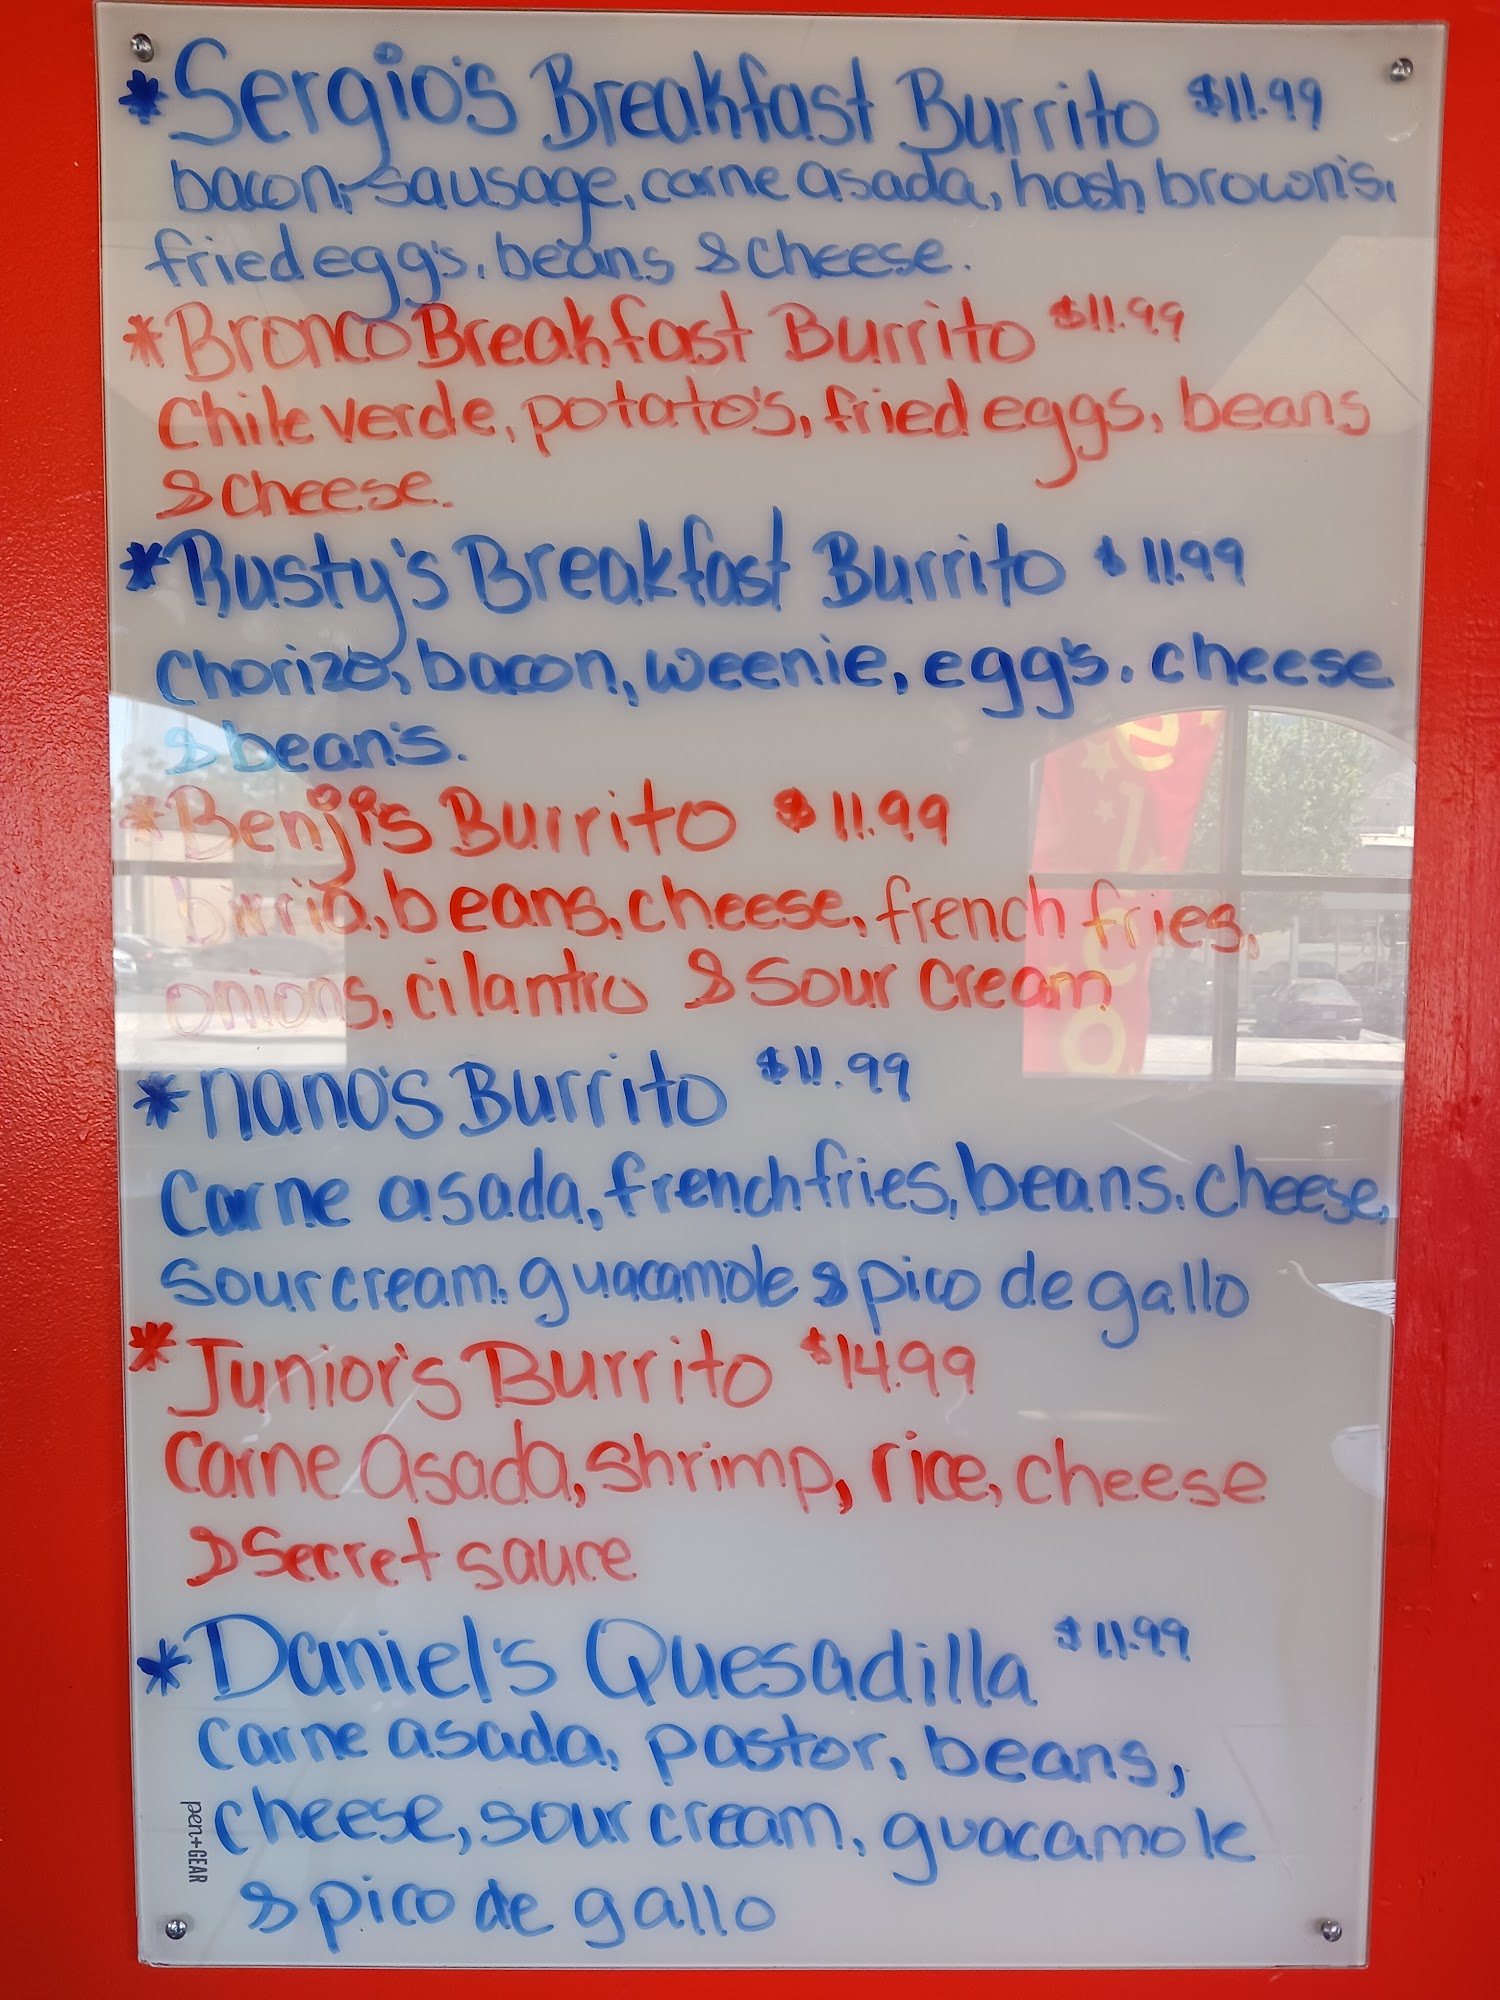 *Sergio's Breakfast Burrito $11.99
bacon, sausage, carne asada, hash brown's,
fried egg's, beans & cheese.
*Bronco Breakfast Burrito $11.99
Chile verde, potato's, fried eggs, beans
& cheese.
*Rusty's Breakfast Burrito $11.99
Chorizo, bacon, weenie, egg's, cheese
& bean's.
*Benji's Burrito $11.99
birria, beans, cheese, french fries,
onions, cilantro & sour cream
*nano's Burrito $11.99
Carne asada, french fries, beans, cheese,
sour cream, guacamole & pico de gallo
*Junior's Burrito $14.99
Carne asada, shrimp, rice, cheese
& Secret sauce
*Daniel's Quesadilla $11.99
Carne asada, pastor, beans,
cheese, sour cream, guacamole
& pico de gallo
pen+GEAR